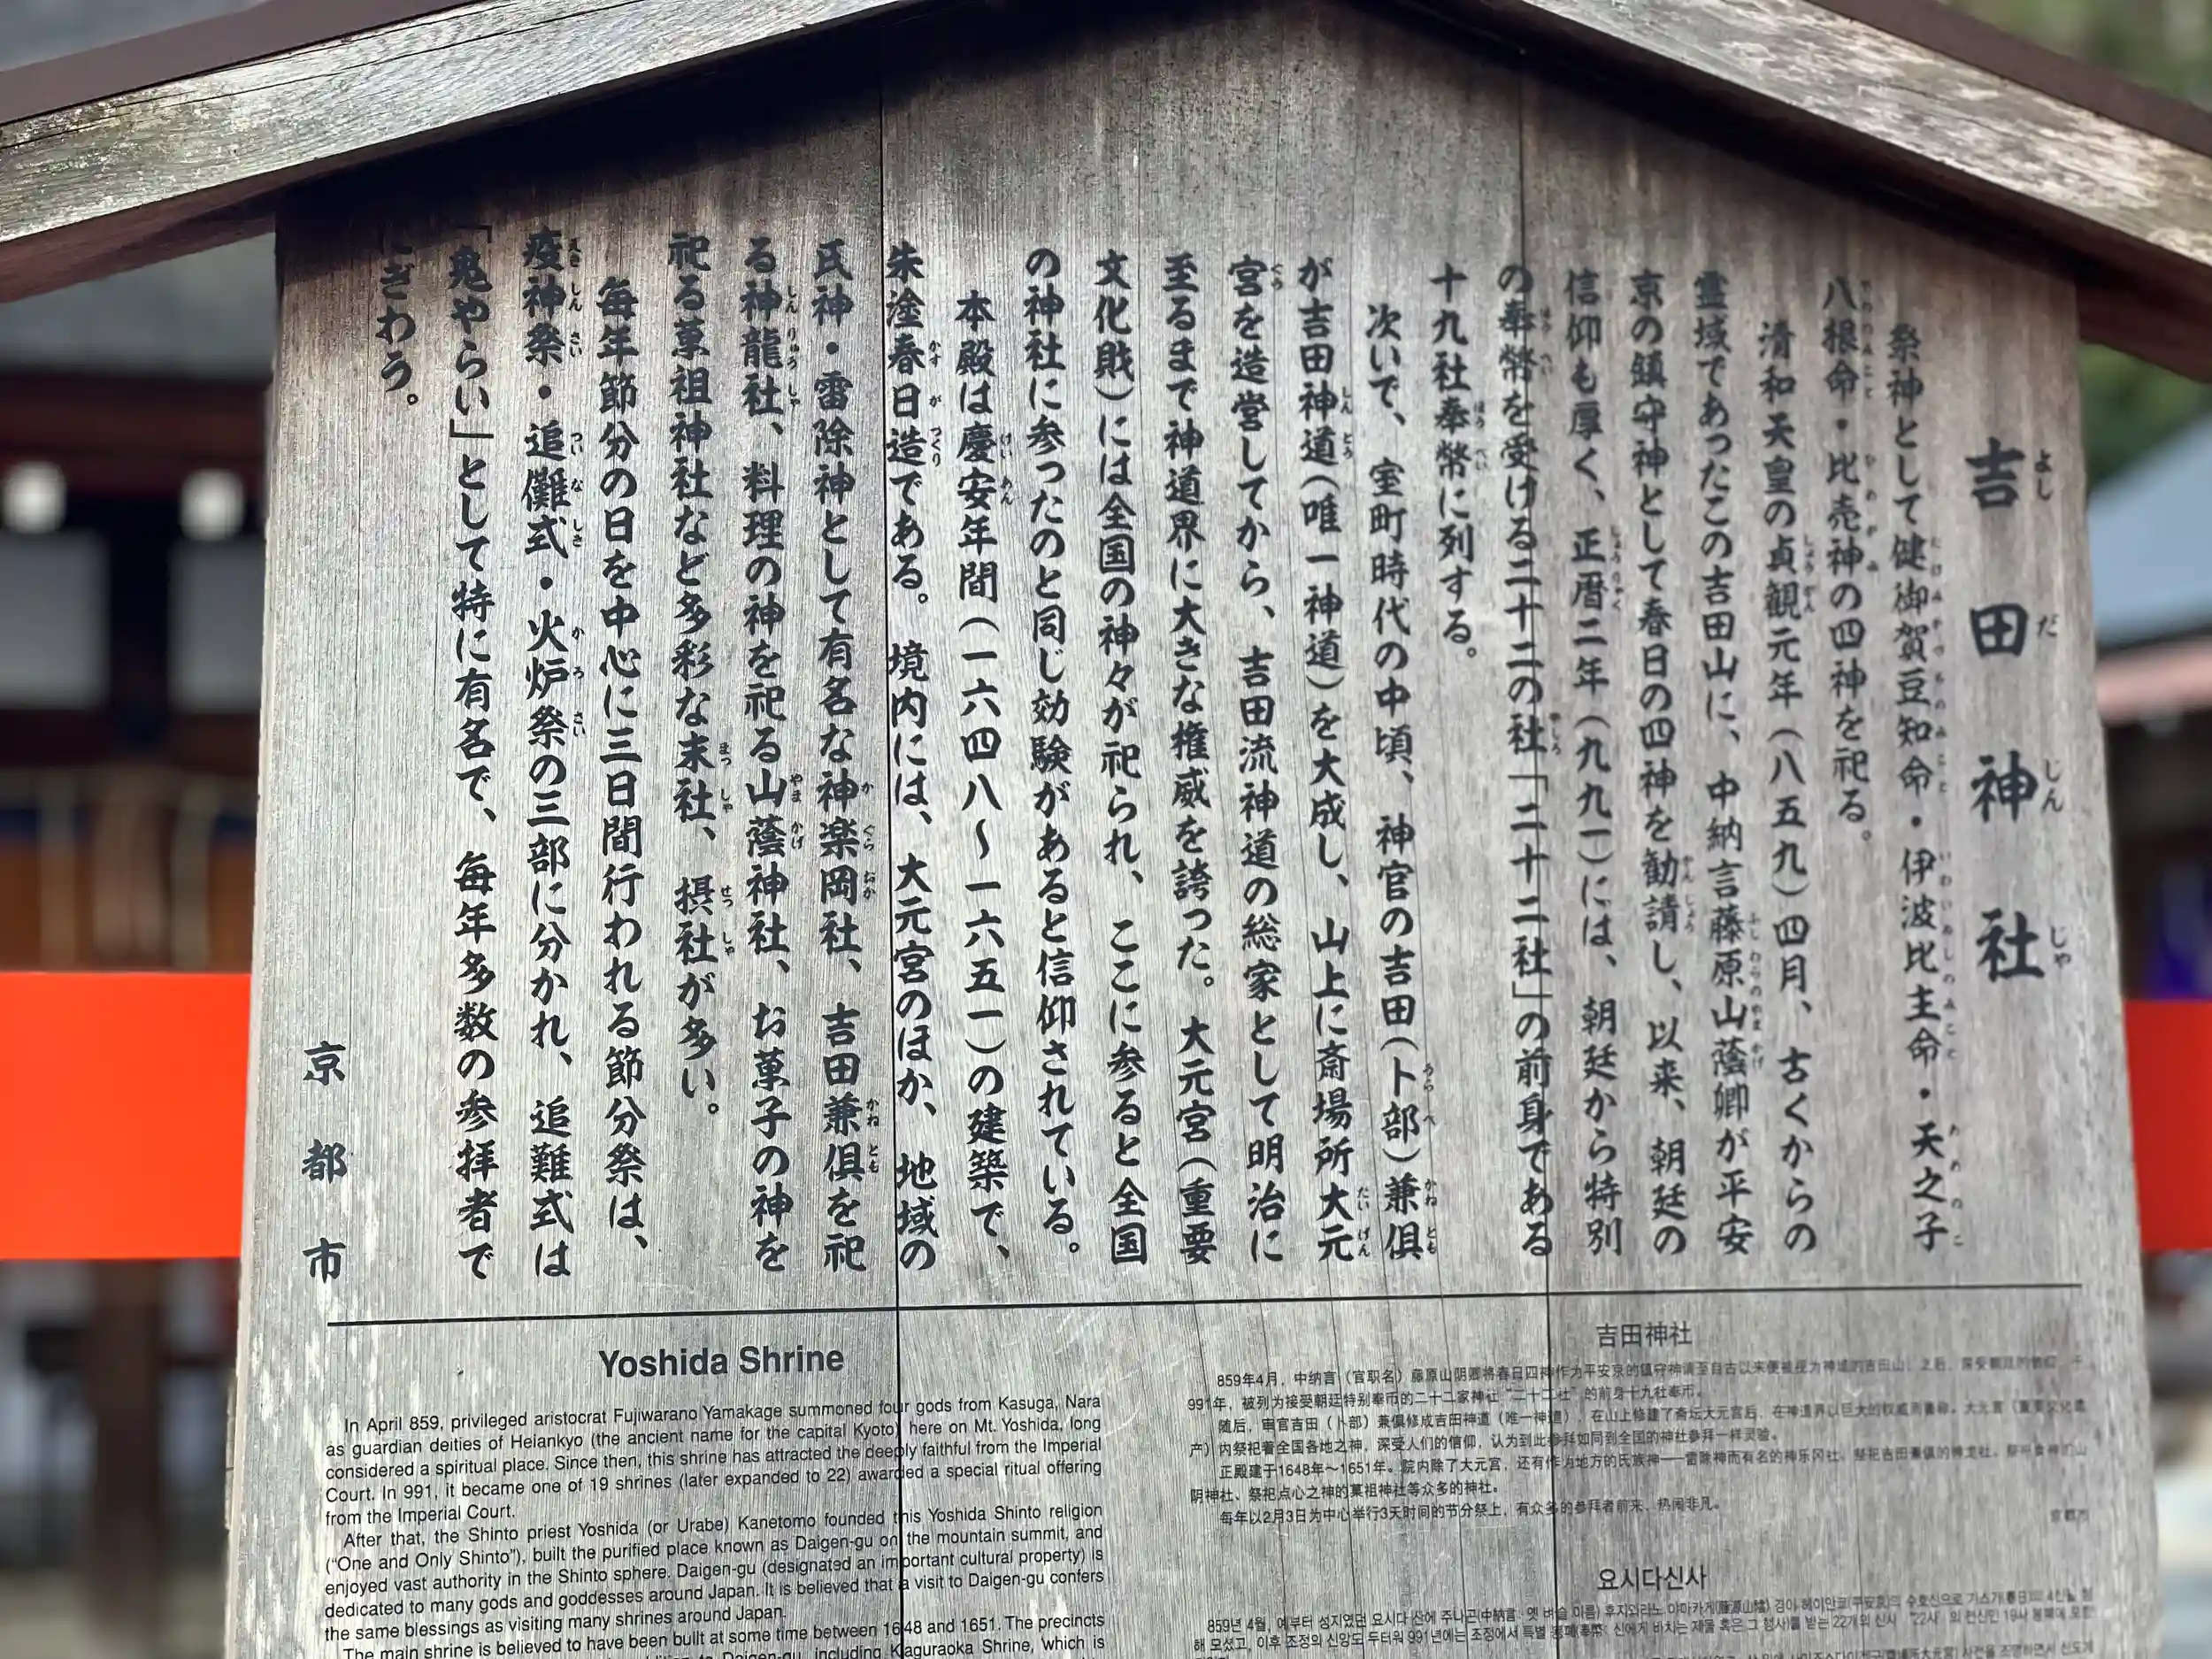 吉田神社
祭神として健御賀豆知命・伊波比主命・天之子
八根命・比売神の四神を祀る。
清和天皇の貞観元年(八五九)四月、古くからの
霊域であったこの吉田山に、中納言藤原山蔭卿が平安
京の鎮守神として春日の四神を勧請し、以来、朝廷の
信仰も厚く、正暦二年(九九一)には、朝廷から特別
の奉幣を受ける二十二の社「二十二社」の前身である
十九社奉幣に列する。
次いで、室町時代の中頃、神官の吉田(卜部)兼倶
が吉田神道(唯一神道)を大成し、山上に斎場所大元
宮を造営してから、吉田流神道の総家として明治に
至るまで神道界に大きな権威を誇った。大元宮(重要
文化財)には全国の神々が祀られ、ここに参ると全国
の神社に参ったのと同じ効験があると信仰されている。
本殿は慶安年間(一六四八〜一六五一)の建築で、
朱塗春日造である。境内には、大元宮のほか、地域の
氏神・雷除神として有名な神楽岡社、吉田兼倶を祀
る神龍社、料理の神を祀る山蔭神社、お菓子の神を
祀る菓祖神社など多彩な末社、摂社が多い。
毎年節分の日を中心に三日間行われる節分祭は、
疫神祭・追儺式・火炉祭の三部に分かれ、追難式は
「鬼やらい」として特に有名で、毎年多数の参拝者で
にぎわう。
京都市
Yoshida Shrine
In April 859, privileged aristocrat Fujiwarano Yamakage summoned four gods from Kasuga, Nara
as guardian deities of Heiankyo (the ancient name for the capital Kyoto) here on Mt. Yoshida, long
considered a spiritual place. Since then, this shrine has attracted the deeply faithful from the Imperial
Court. In 991, it became one of 19 shrines (later expanded to 22) awarded a special ritual offering
from the Imperial Court.
After that, the Shinto priest Yoshida (or Urabe) Kanetomo founded this Yoshida Shinto religion
("One and Only Shinto"), built the purified place known as Daigen-gu on the mountain summit, and
enjoyed vast authority in the Shinto sphere. Daigen-gu (designated an important cultural property) is
dedicated to many gods and goddesses around Japan. It is believed that a visit to Daigen-gu confers
the same blessings as visiting many shrines around Japan.
The main shrine is believed to have been built at some time between 1648 and 1651. The precincts
Daigen-gu, including Kaguraoka Shrine, which is
吉田神社
859年4月，中纳言（官职名）藤原山阴卿将春日四神作为平安京的镇守神请至自古以来便被视为神域的吉田山。之后，深受朝廷的信仰，于
991年，被列为接受朝廷特别奉币的二十二家神社“二十二社”的前身十九社奉币。
随后，审官吉田（卜部）兼俱修成吉田神道（唯一神道），在山上修建了斋坛大元宫后，在神道界以巨大的权威而著称。大元宫（重要文化遗
产）内祭祀着全国各地之神，深受人们的信仰，认为到此参拜如同到全国的神社参拜一样灵验。
正殿建于1648年～1651年。院内除了大元宫，还有作为地方的氏族神——雷除神而有名的神乐冈社、祭祀吉田兼俱的神龙社、祭祀食神的山
阴神社、祭祀点心之神的菓祖神社等众多的神社。
每年以2月3日为中心举行3天时间的节分祭上，有众多的参拜者前来，热闹非凡。
京都市
요시다신사
859년 4월, 예부터 성지였던 요시다 산에 주나곤(中納言: 옛 벼슬 이름) 후지와라노 야마카게(藤原山蔭) 경이 헤이안쿄(平安京)의 수호신으로 가스가(春日)의 4신을
해 모셨고, 이후 조정의 신앙도 두터워 991년에는 조정에서 특별 봉폐(奉幣: 신에게 바치는 재물 혹은 그 행사)를 받는 22개의 신사 “22사”의 전신인 19사 봉폐에